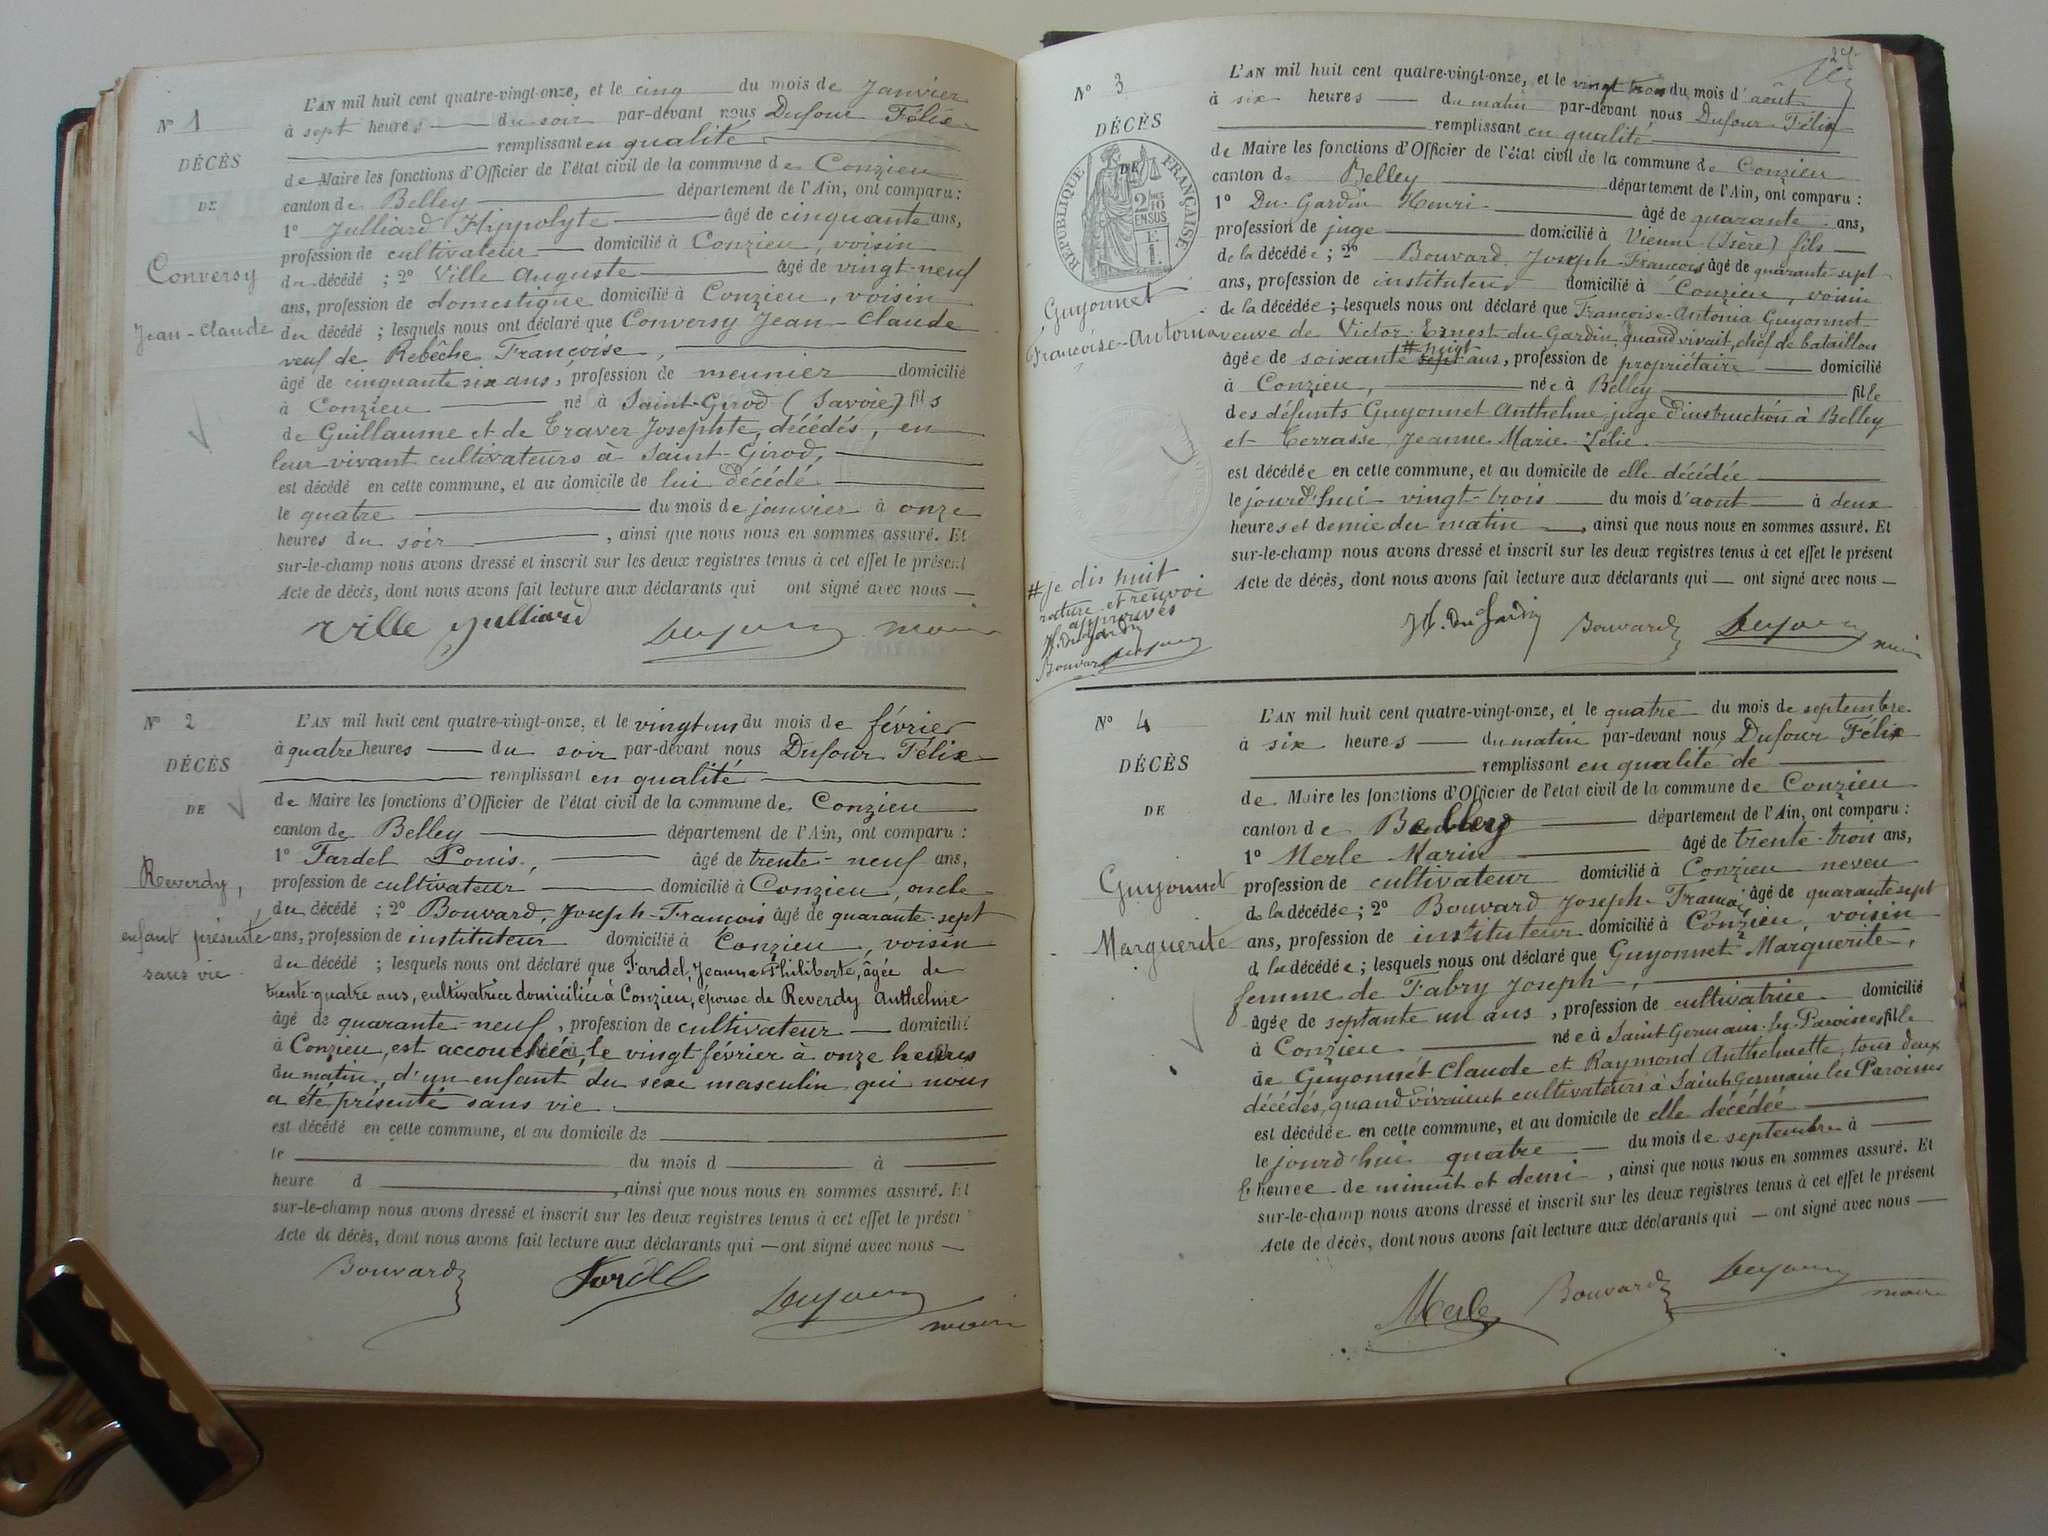 N° 1
DÉCÈS
DE
Conversy
Jean-Claude
L'AN mil huit cent quatre-vingt-onze, et le cinq du mois de Janvier
à sept heures du soir par-devant nous Dufour Félix
remplissant en qualité
de Maire les fonctions d'Officier de l'état civil de la commune de Conzieu
canton de Belley département de l'Ain, ont comparu :
1° Julliard Hippolyte âgé de cinquante ans,
profession de cultivateur domicilié à Conzieu, voisin
du décédé ; 2° Ville Auguste âgé de vingt-neuf
ans, profession de domestique domicilié à Conzieu, voisin
du décédé ; lesquels nous ont déclaré que Conversy Jean-Claude
veuf de Rebêche Françoise,
âgé de cinquante six ans, profession de meunier domicilié
à Conzieu né à Saint-Girod (Savoie) fils
de Guillaume et de Traver Josephte, décédés, en
leur vivant cultivateurs à Saint-Girod,
est décédé en cette commune, et au domicile de lui décédé
le quatre du mois de janvier à onze
heures du soir, ainsi que nous nous en sommes assuré. Et
sur-le-champ nous avons dressé et inscrit sur les deux registres tenus à cet effet le présent
Acte de décès, dont nous avons fait lecture aux déclarants qui ont signé avec nous —
Ville Julliard Dufour maire
N° 2
DÉCÈS
DE
Reverdy,
enfant présenté
sans vie
L'AN mil huit cent quatre-vingt-onze, et le vingt un du mois de février
à quatre heures du soir par-devant nous Dufour Félix
remplissant en qualité
de Maire les fonctions d'Officier de l'état civil de la commune de Conzieu
canton de Belley département de l'Ain, ont comparu :
1° Fardel Louis, âgé de trente-neuf ans,
profession de cultivateur domicilié à Conzieu, oncle
du décédé ; 2° Bouvard, Joseph-François âgé de quarante-sept
ans, profession de instituteur domicilié à Conzieu, voisin
du décédé ; lesquels nous ont déclaré que Fardel, Jeanne Philiberte, âgée de
trente-quatre ans, cultivatrice domiciliée à Conzieu, épouse de Reverdy Anthelme
âgé de quarante-neuf, profession de cultivateur — domicilié
à Conzieu, est accouchée, le vingt février à onze heures
du matin, d'un enfant du sexe masculin qui nous
a été présenté sans vie
est décédé en cette commune, et au domicile de
le du mois d à
heure d, ainsi que nous nous en sommes assuré. Et
sur-le-champ nous avons dressé et inscrit sur les deux registres tenus à cet effet le présent
Acte de décès, dont nous avons fait lecture aux déclarants qui — ont signé avec nous —
Bouvard Dufour maire
N° 3
DÉCÈS
DE
RÉPUBLIQUE FRANÇAISE
Guyonnet
Françoise-Antonia
L'AN mil huit cent quatre-vingt-onze, et le vingt trois du mois d'août
à six heures — du matin par-devant nous Dufour Félix
remplissant en qualité
de Maire les fonctions d'Officier de l'état civil de la commune de Conzieu
canton de Belley département de l'Ain, ont comparu :
1° Du Gardin Henri âgé de quarante ans,
profession de juge domicilié à Vienne (Isère) fils
de la décédée ; 2° Bouvard Joseph-François âgé de quarante-sept
ans, profession de instituteur domicilié à Conzieu, voisin
de la décédée ; lesquels nous ont déclaré que Françoise-Antonia Guyonnet
veuve de Victor-Ernest du Gardin, quand vivait, chef de bataillon
# huit
âgée de soixante sept ans, profession de propriétaire domicilié
à Conzieu, née à Belley fille
des défunts Guyonnet Anthelme juge d'instruction à Belley
et Terrasse Jeanne Marie Zélie
est décédée en cette commune, et au domicile de elle décédée
le jourd'hui vingt-trois du mois d'aout à deux
heures et demie du matin, ainsi que nous nous en sommes assuré. Et
sur-le-champ nous avons dressé et inscrit sur les deux registres tenus à cet effet le présent
Acte de décès, dont nous avons fait lecture aux déclarants qui — ont signé avec nous —
# je dis huit
rature et renvoi
approuvés
H. du Gardin
Bouvard Dufour
H. du Gardin Bouvard Dufour maire
N° 4
DÉCÈS
DE
Guyonnet
Marguerite
L'AN mil huit cent quatre-vingt-onze, et le quatre du mois de septembre
à six heures — du matin par-devant nous Dufour Félix
remplissant en qualité de
de Maire les fonctions d'Officier de l'état civil de la commune de Conzieu
canton de Belley département de l'Ain, ont comparu :
1° Merle Marin âgé de trente-trois ans,
profession de cultivateur domicilié à Conzieu neveu
de la décédée ; 2° Bouvard Joseph-François âgé de quarante sept
ans, profession de instituteur domicilié à Conzieu, voisin
de la décédée ; lesquels nous ont déclaré que Guyonnet Marguerite,
femme de Fabry Joseph,
âgée de septante un ans, profession de cultivatrice domicilié
à Conzieu née à Saint Germain les Paroisses fille
de Guyonnet Claude et Raymond Anthelmette, tous deux
décédés, quand vivaient cultivateurs à Saint-Germain les Paroisses
est décédée en cette commune, et au domicile de elle décédée
le jourd'hui quatre du mois de septembre à
heure de minuit et demi, ainsi que nous nous en sommes assuré. Et
sur-le-champ nous avons dressé et inscrit sur les deux registres tenus à cet effet le présent
Acte de décès, dont nous avons fait lecture aux déclarants qui — ont signé avec nous —
Merle Bouvard Dufour maire